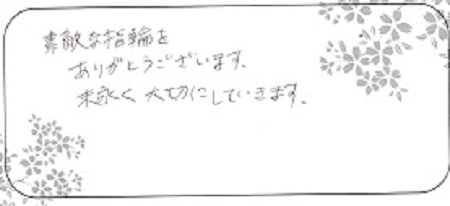 素敵な指輪を
ありがとうございます。
末永く大切にしていきます。